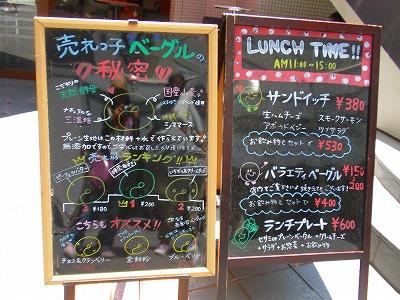 売れっ子ベーグルの
秘密
こだわりの
天然酵母
国産小麦
ナチュラルな
三温糖
シママース
プレーン生地はこの材料+水で作っています。
売れ筋ランキング!!
3 ¥180
1 ¥200
2 ¥200
こちらもオススメ!!
チョコ&クランベリー
全粒粉
ブルーベリー
LUNCH TIME!!
AM11:00~15:00
サンドイッチ ¥380
生ハムチーズ スモークサーモン
アボカドベジー ツナサラダ
お飲み物とセットで
¥530
バラエティベーグル ¥150
~200
お飲み物とセットで
¥400
ランチプレート ¥600
セサミorプレーンベーグル+クリームチーズ
+サラダ+お惣菜+お飲み物